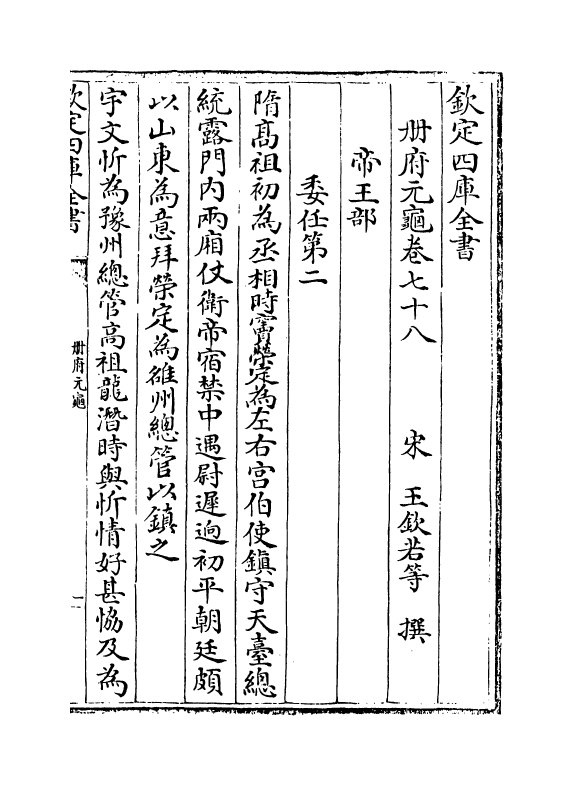 欽定四庫全書
冊府元龜卷七十八　宋　王欽若等　撰
帝王部
委任第二
隋髙祖初為丞相時竇榮定為左右宫伯使鎮守天臺總
統露門内兩廂仗衛帝宿禁中遇尉遲迥初平朝廷頗
以山東為意拜榮定為雒州總管以鎮之
宇文忻為豫州總管高祖龍潛時與忻情好甚恊及為
欽定四庫全書
冊府元龜